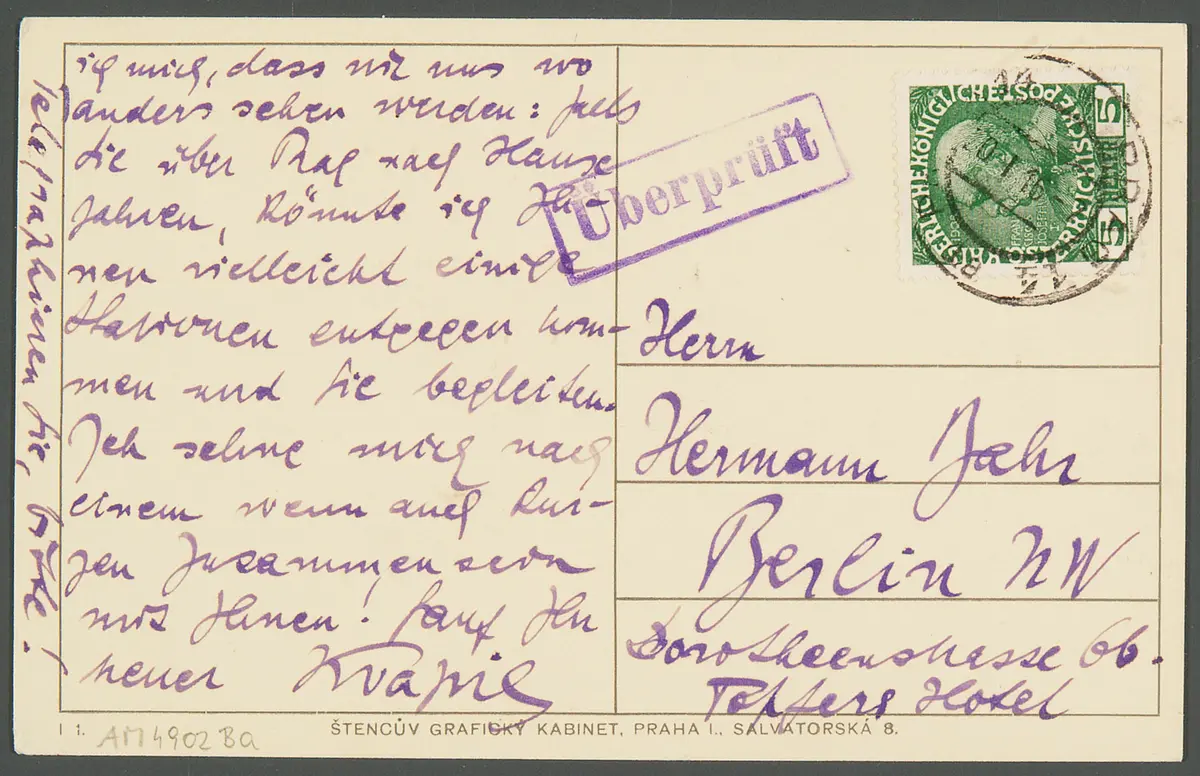 ich mich, dass wir uns wo
anders sehen werden: falls
Sie über Prag nach Hause
fahren, könnte ich Ih-
nen vielleicht einige
Stationen entgegen kom-
men und Sie begleiten.
Ich sehne mich nach
einem wenn auch kur-
zen Zusammensein
mit Ihnen! Ganz Ihr
treuer Kvapil
Telegraphieren Sie, bitte!
Überprüft
KAISERLICHE KÖNIGLICHE ÖSTERREICHISCHE POST
5 HELLER 5
Herrn
Hermann Bahr
Berlin NW
Dorotheenstrasse 66.
Töpfers Hotel
I 1.
AM 4902 Ba
ŠTENCŮV GRAFICKÝ KABINET, PRAHA I., SALVATORSKÁ 8.